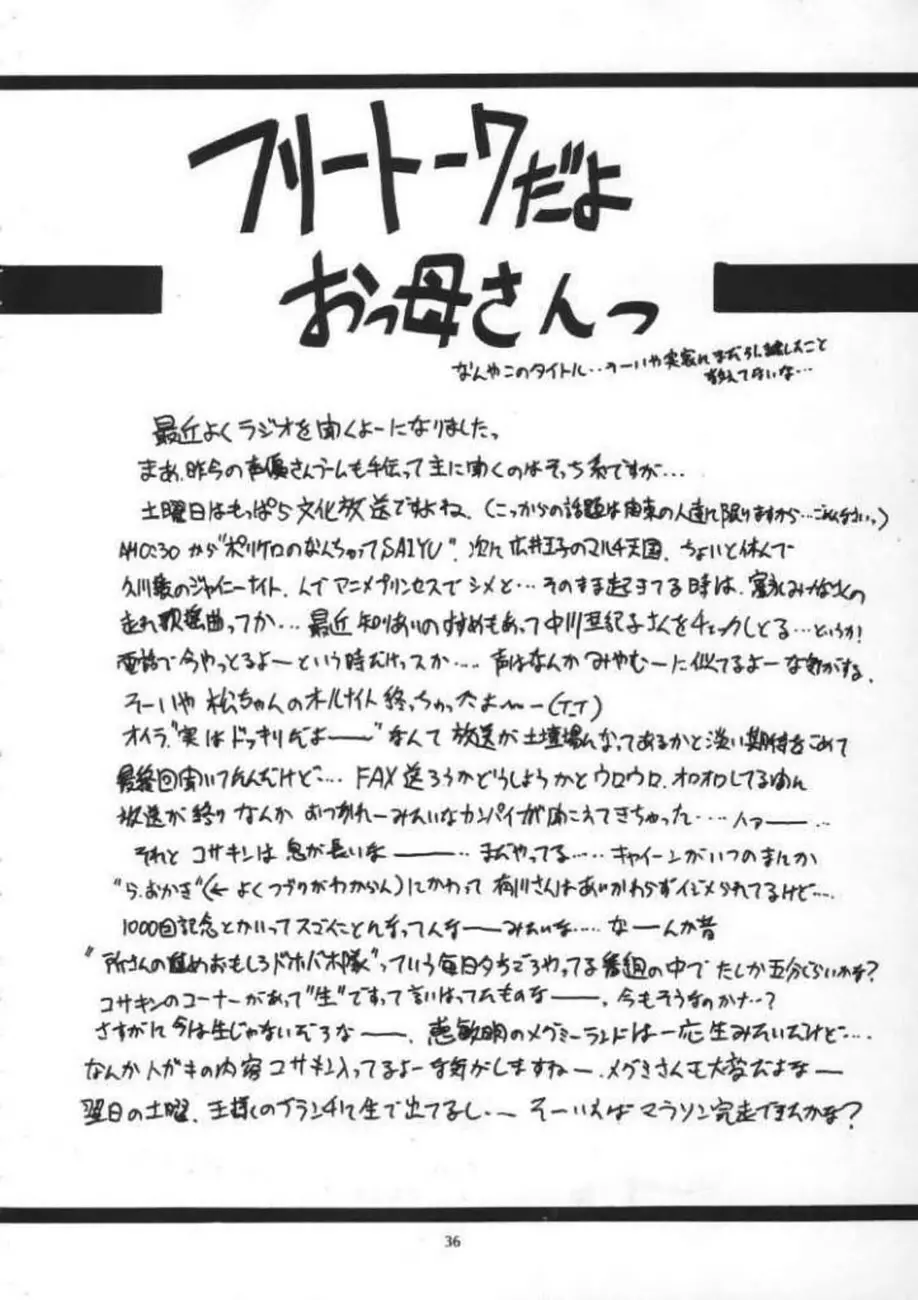 フリートークだよ
おっ母さんっ
なんやこのタイトル・・そーいや実家にまだ引っ越したこと
教えてないな…
最近よくラジオを聞くよーになりました。
まあ、昨今の声優さんブームも手伝って主に聞くのはそっち系ですが…
土曜日はもっぱら文化放送ですよね、(こっからの話題は関東の人達に限りますから…ごめんなさいっ)
AM0:30から"ポリケロのなんちゃってSAIYU"、次に広井王子のマルチ天国、ちょいと休んで
久川綾のシャイニーナイト、んでアニメプリンセスでシメと…そのまま起きてる時は、冨永みーなさんの
走れ歌謡曲ってか…最近知りあいのすすめもあって中川亜紀子さんをチェックしとる…というか!
電話で今やっとるよーという時だけッスか…、声はなんかみやむーに似てるよーな気がする、
そーいや松ちゃんのオールナイト終っちゃったよ〜ー(T_T)
オイラ、"実はドッキリだよ———"なんて放送が土壇場になってあるかと淡い期待をこめて
最終回聞いてたんだけど…FAX送ろうかどうしようかとウロウロ、オロオロしてる内に
放送が終り なんか おつかれーみたいなカンパイが聞こえてきちゃった…ハァ——…
それと コサキンは息が長いな———‥まだやってる…キャイーンがいつのまにか
"ら・おかき"(←よくつづりがわからん)にかわって有川さんはあいかわらずイジメられてるけど…
1000回記念とかいってスゴイことになってんな——みたいな…なーんか昔
"所さんの進めおもしろドホバホ隊"っていう毎日夕方ごろやってる番組の中でたしか五分くらいかな?
コサキンのコーナーがあって"生"ですって言いはってたものな——、今もそうなのかナ‥?
さすがに今は生じゃないだろな——、恵敏明のメグミーランドは一応生みたいだけど…
なんかハガキの内容コサキン入ってるよーな気がしますねー、メグミさんも大変だよなー
翌日の土曜、王様のブランチに生で出てるし・〜 そーいえばマラソン完走できたかな?
36